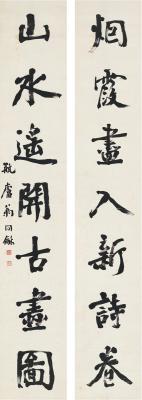 烟霞畫入新詩卷
山水遙開古畫圖
瓶廬翁同龢